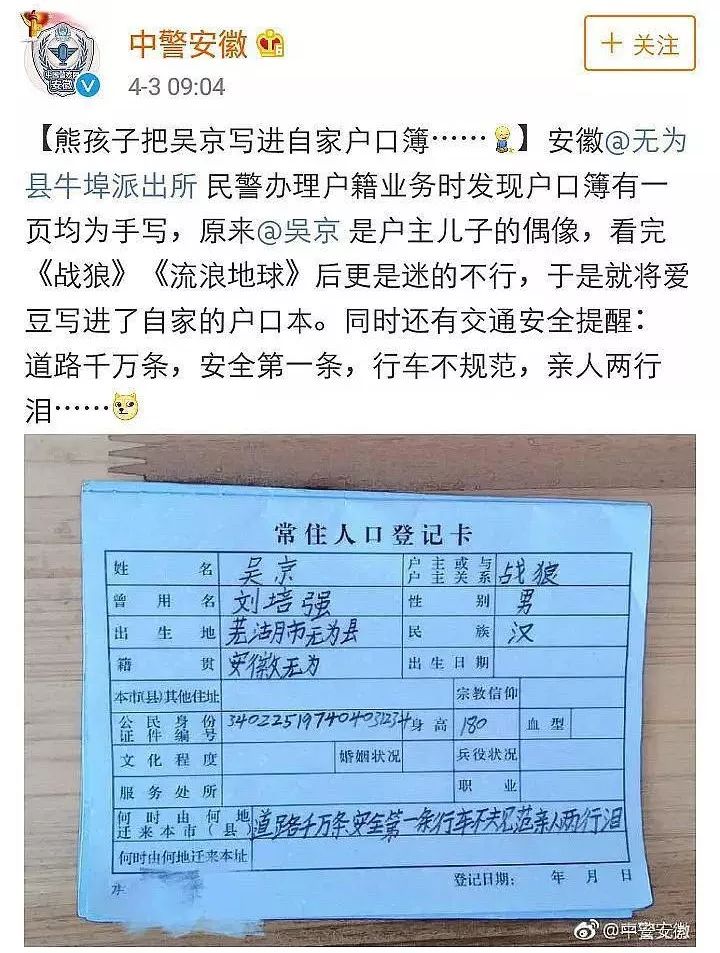 中警安徽
4-3 09:04
+ 关注
【熊孩子把吴京写进自家户口簿……】安徽@无为
县牛埠派出所 民警办理户籍业务时发现户口簿有一
页均为手写，原来@吳京 是户主儿子的偶像，看完
《战狼》《流浪地球》后更是迷的不行，于是就将爱
豆写进了自家的户口本。同时还有交通安全提醒：
道路千万条，安全第一条，行车不规范，亲人两行
泪……
常住人口登记卡
姓名 吴京 户主或与户主关系 战狼
曾用名 刘培强 性别 男
出生地 芜湖市无为县 民族 汉
籍贯 安徽无为 出生日期
本市(县)其他住址 宗教信仰
公民身份证件编号 340225197404031234 身高 180 血型
文化程度 婚姻状况 兵役状况
服务处所 职业
何时由何地迁来本市(县) 道路千万条安全第一条行车不规范亲人两行泪
何时由何地迁来本址
登记日期： 年 月 日
@中警安徽